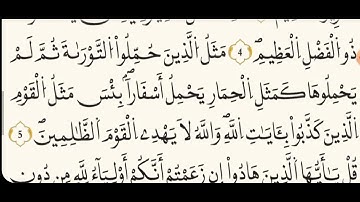 ذُو الْفَضْلِ الْعَظِيمِ 4 مَثَلُ الَّذِينَ حُمِّلُوا التَّوْرَاةَ ثُمَّ لَمْ
يَحْمِلُوهَا كَمَثَلِ الْحِمَارِ يَحْمِلُ أَسْفَارًا بِئْسَ مَثَلُ الْقَوْمِ
الَّذِينَ كَذَّبُوا بِـَٔايَاتِ اللَّهِ وَاللَّهُ لَا يَهْدِي الْقَوْمَ الظَّالِمِينَ 5
قُلْ يَا أَيُّهَا الَّذِينَ هَادُوا إِن زَعَمْتُمْ أَنَّكُمْ أَوْلِيَاءُ لِلَّهِ مِن دُونِ